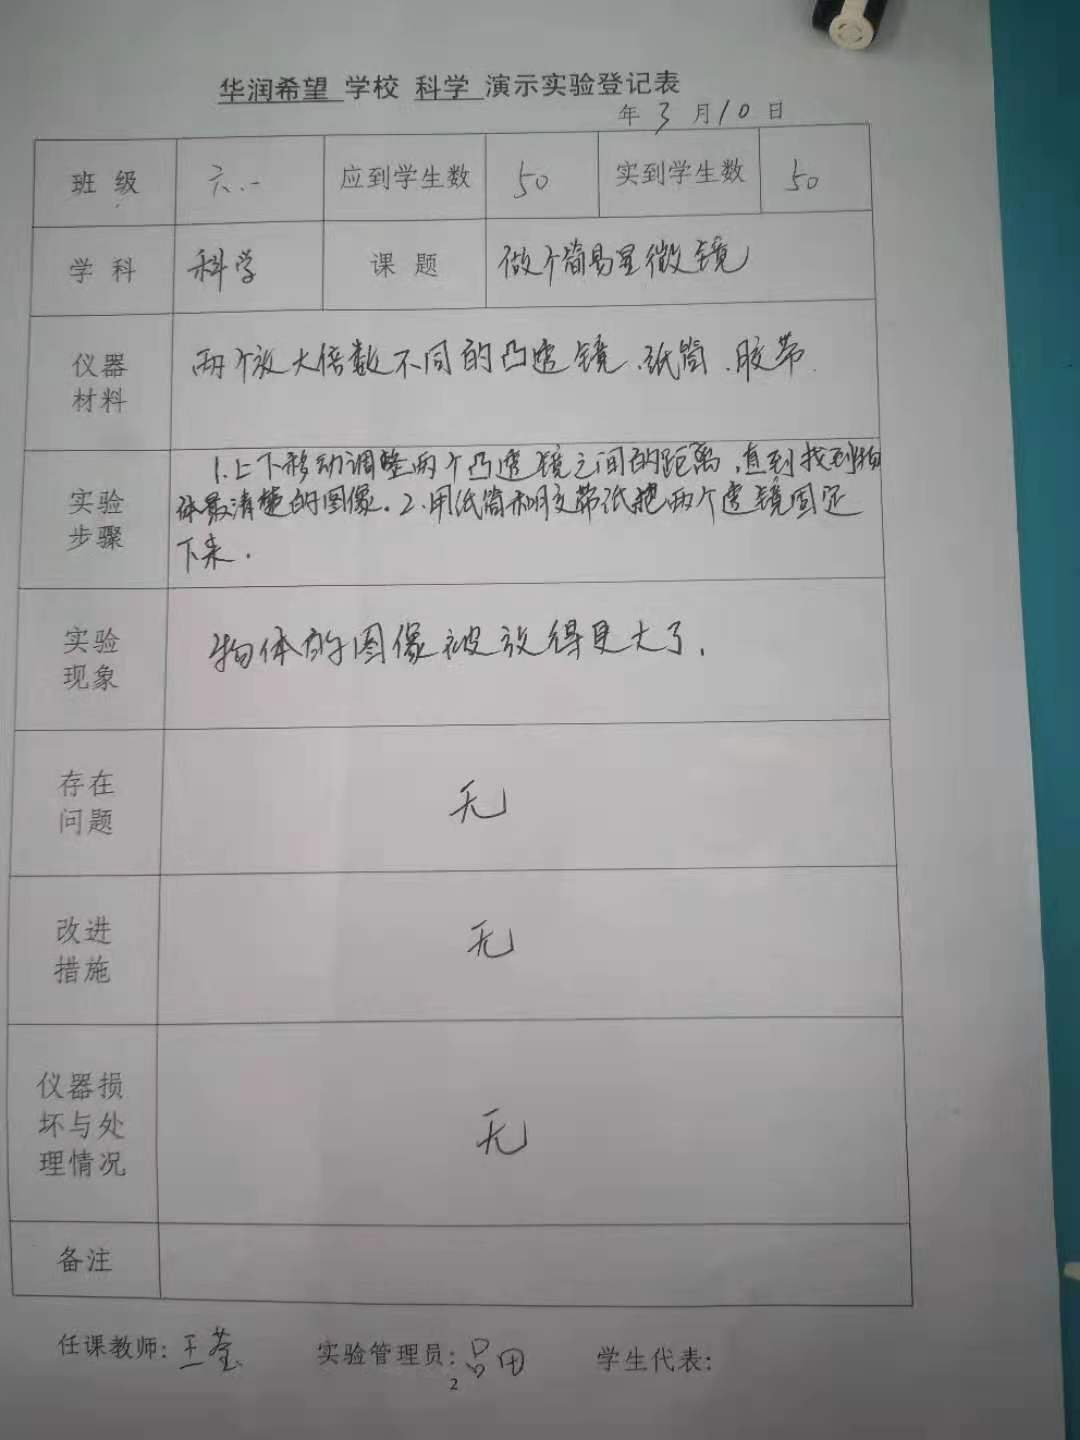 华润希望 学校 科学 演示实验登记表
年 3 月 10 日
班 级 六.一 应到学生数 50 实到学生数 50
学 科 科学 课 题 做个简易显微镜
仪器
材料
两个放大倍数不同的凸透镜、纸筒、胶带.
实验
步骤
1.上下移动调整两个凸透镜之间的距离,直到找到物
体最清楚的图像.2.用纸筒和胶带纸把两个透镜固定
下来.
实验
现象
物体的图像被放得更大了.
存在
问题
无
改进
措施
无
仪器损
坏与处
理情况
无
备注
任课教师:王莹 实验管理员:吕田 学生代表:
2